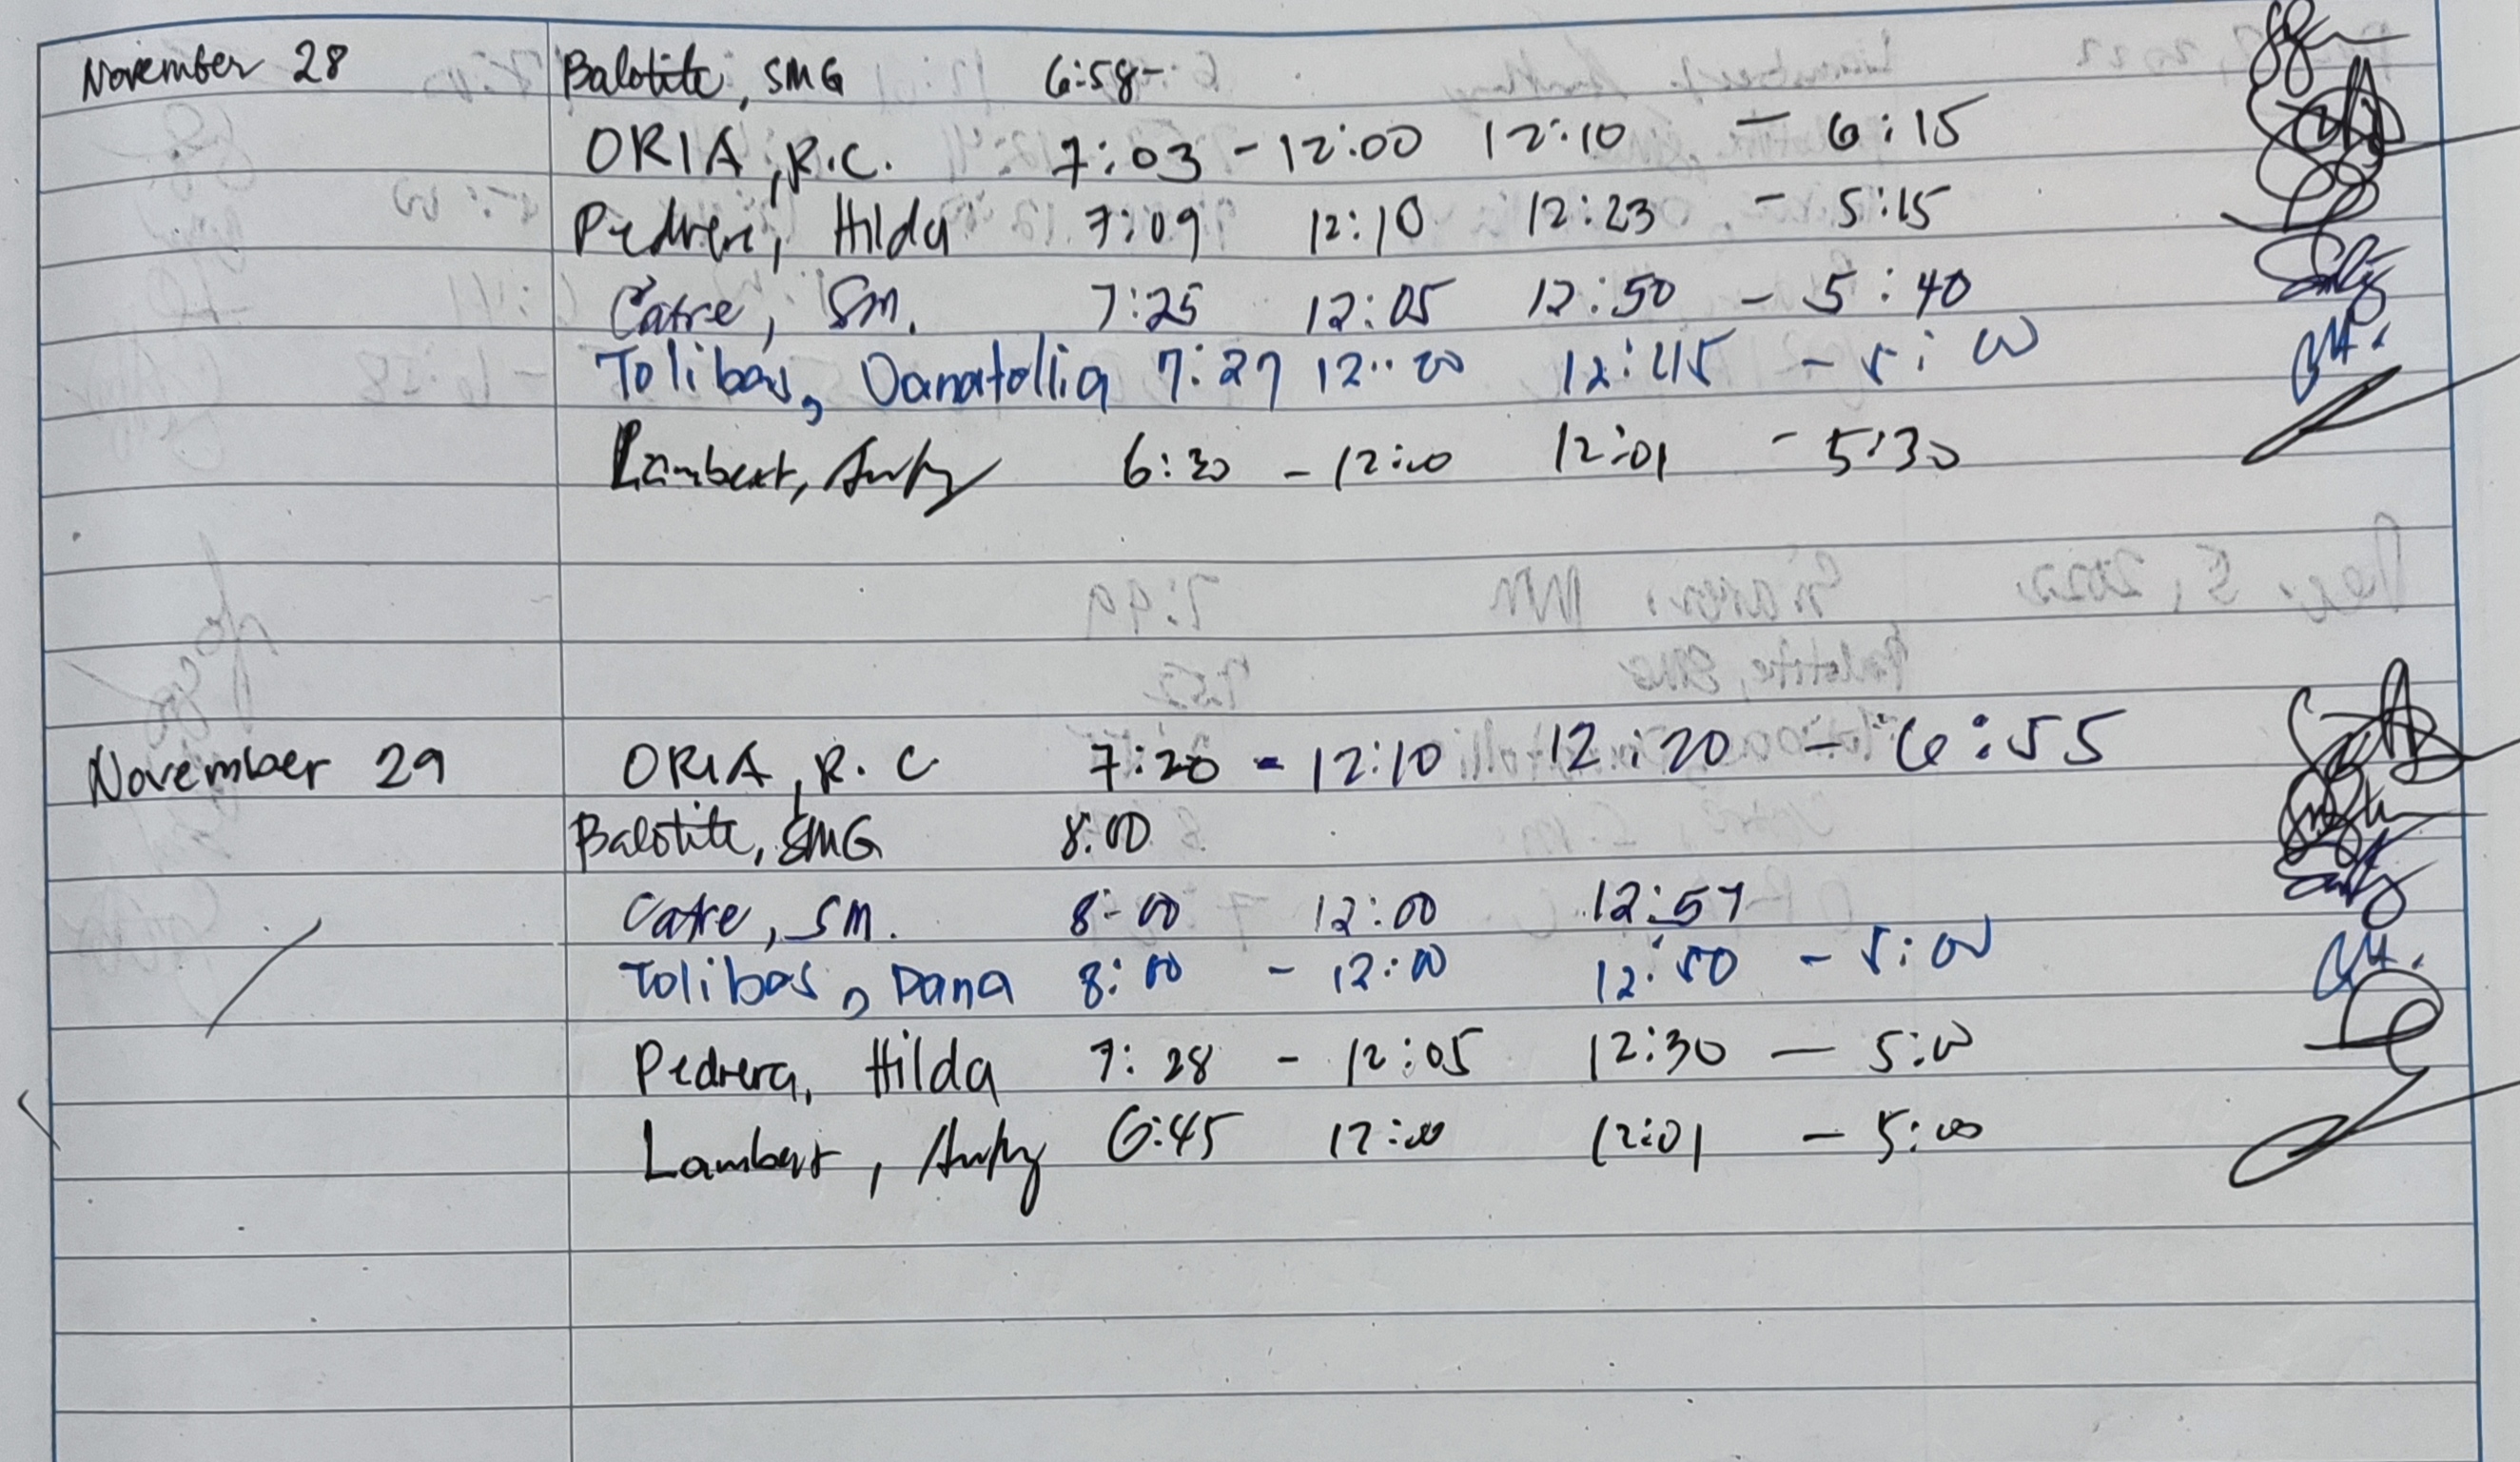 November 28 Balotite, SMG 6:58-
ORIA, R.C. 7:03 - 12:00 12:10 - 6:15
Pedrera, Hilda 7:09 12:10 12:23 - 5:15
Catre, SM. 7:25 12:05 12:50 - 5:40
Tolibas, Danatollia 7:27 12:00 12:45 - 5:00
Lambert, 6:30 - 12:00 12:01 - 5:30
November 29 ORIA, R.C 7:20 - 12:10 12:20 - 6:55
Balotite, SMG 8:00
Catre, SM. 8-00 12:00 12:57
Tolibas, Dana 8:00 - 12:00 12:50 - 5:00
Pedrera, Hilda 7:28 - 12:05 12:30 - 5:00
Lambert, 6:45 12:00 12:01 - 5:00